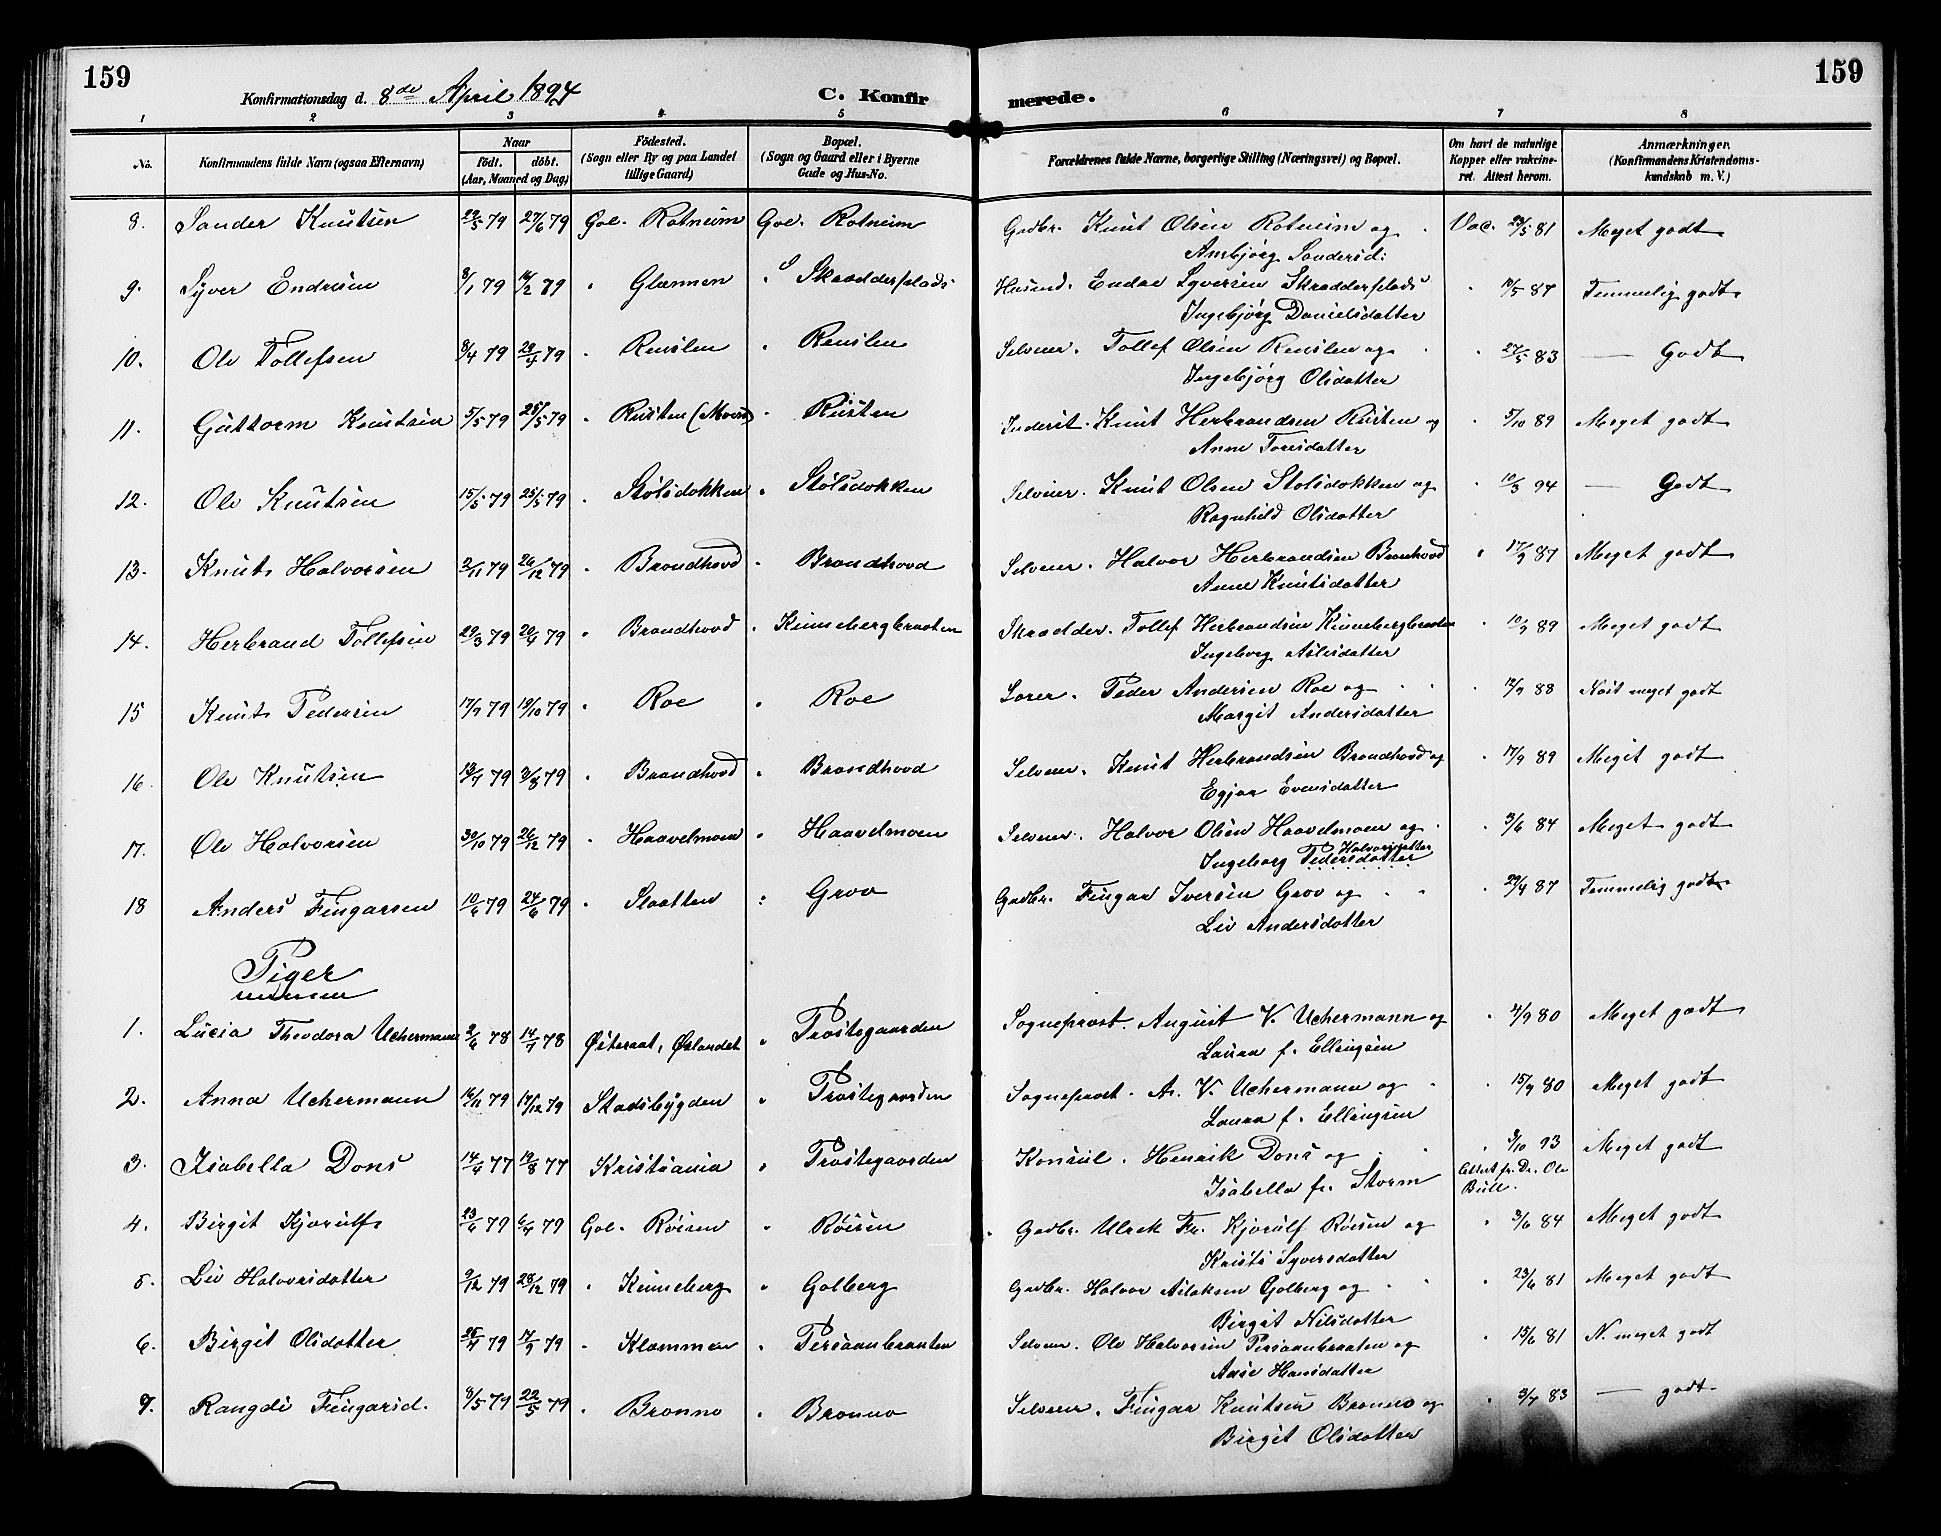 159
Konfirmationsdag d. 8de April 1894
C. Konfirmerede.
159
1 2 3 4 5 6 7 8
No. Konfirmandens fulde Navn (ogsaa Efternavn) Naar födt. döbt. (Aar, Maaned og Dag) Födested. (Sogn eller By og paa Landet tillige Gaard) Bopæl. (Sogn og Gaard eller i Byerne Gade og Hus-No. Forældrenes fulde Navne, borgerlige Stilling (Næringsvei) og Bopæl. Om havt de naturlige Kopper eller vakcineret. Attest herom. Anmærkninger. (Konfirmandens Kristendomskundskab m. V.)
8. Sander Knutsen 29/5 79 27/6 79 Gol. Rotneim Gol. Rotneim Gadbr. Knut Olsen Rotneim og Vac. 5 81 Meget godt
Ambjörg Sandersd:
9. Syver Endresen 8/1 79 16/2 79 " Glænnen " Skradderplads Husmd. Endre Syversen Skradderplads " 10/5 87 Temmelig godt
Ingebjörg Danielsdatter
10. Ole Tollefsen 8/4 79 79 " Renslen " Renslen Selveier. Tollef Olsen Renslen og " 27/5 83 — Godt
Ingebjörg Olsdatter
11. Guttorm Knutsen 5/5 79 25/5 79 " Rusten " Rusten Inderst. Knut Herbrandsen Rusten og " 5/10 89 Meget godt
Anne Toresdatter
12. Ole Knutsen 15/5 79 25/5 79 " Stölsdokken " Stölsdokken Selveier. Knut Olsen Stolsdokken og " 10/3 94 — Godt
Ragnhild Olsdatter
13. Knut Halvorsen 2/11 79 26/12 79 " Brandhovd " Brandhovd Selveier. Halvor Herbrandsen Brandhovd " 17/9 87 Meget godt
Anne Knutsdatter
14. Herbrand Tollefsen 29/3 79 20/4 79 " Brandhovd " Kinnebergbraaten Skrædder. Tollef Herbrandsen Kinnebergbraaten " 10/9 89 Meget godt
Ingeborg Aslesdatter
15 Knut Pedersen 17/9 79 19/10 79 " Roe " Roe Lorer. Peder Andersen Roe og " 12/9 88 Næst meget godt
Margit Andersdatter
16. Ole Knutsen 13/7 79 3/8 79 " Brandhovd " Brandhovd Selveier. Knut Herbrandsen Brandhovd og " 17/9 89 Meget godt
Egjar Evensdatter
17. Ole Halvorsen 30/10 79 26/12 79 " Haavelmoen " Haavelmoen Selveier. Halvor Olsen Haavelmoen og " 3/6 84 Meget godt
Halvorsdatter
Ingeborg Pedersdatter
18 Anders Fingarsen 10/6 79 24/6 79 " Slaatten " Groo Gadbr. Fingar Iversen Grov og " 29/9 87 Temmelig godt
Liv Andersdatter
Piger
1. Lucia Theodora Uchermann 2/6 78 14/7 78 Østeraat, Ørlandet " Prostegaarden Sogneprost. August V. Uchermann og " 2/9 80 Meget godt
Laura f. Ellingsen
2. Anna Uchermann 16/11 79 17/12 79 Stadsbygden " Prostegaarden Sogneprost. A. V. Uchermann og " 15/9 80 Meget godt
Laura f. Ellingsen
3. Isabella Dons 14/4 77 19/8 77 Kristiania " Prostegaarden Konsul. Henrik Dons og " 3/10 93 Meget godt
Isabella f. Storm Attest fr. Dr. Ole Bull.
4. Birgit Kjørulf 23/6 79 6/7 79 Gol. Røisen " Røisen Gadbr. Ulrek Fr. Kjørulf Röisen og " 3/6 84 Meget godt
Kristi Syversdatter
5. Liv Halvorsdatter 9/12 79 28/12 79 " Kinneberg " Golberg Gadbr. Halvor Aslaksen Golberg og " 23/6 81 Meget godt
Birgit Nilsdatter
6. Birgit Olsdatter 79 17/9 79 " Klemmen " Persaanbraaten Selveier. Ole Halvorsen Persaanbraaten og " 15/6 81 N. meget godt
Aase Hansdatter
7. Rangdi Fingarsd. 8/5 79 22/5 79 " Brenno " Brenno Selveier. Fingar Knutsen Brenno og " 3/7 83 — godt
Birgit Olsdatter